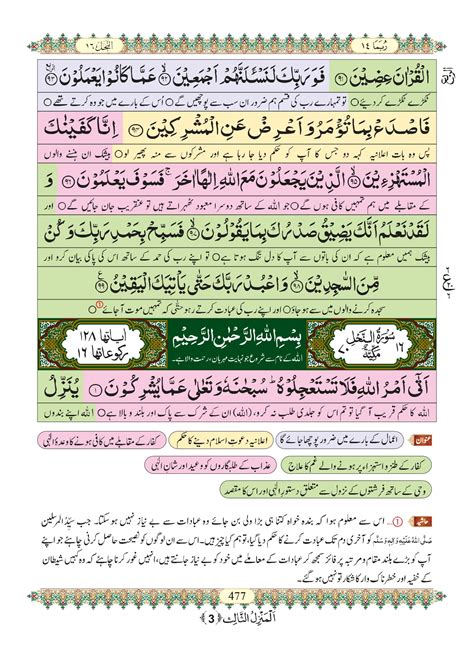 رُبَمَا ١٤
اَلنَّحْل ١٦
الْقُرْاٰنَ عِضِیْنَ ﴿۹۱﴾ فَوَرَبِّكَ لَنَسْـَٔلَنَّهُمْ اَجْمَعِیْنَ ﴿۹۲﴾ عَمَّا كَانُوْا یَعْمَلُوْنَ ﴿۹۳﴾
ٹکڑے ٹکڑے کردئیے ○ تو تمہارے رب کی قسم ہم ضرور ان سب سے پوچھیں گے ○ اُس کے بارے میں جو وہ کرتے تھے ○
فَاصْدَعْ بِمَا تُؤْمَرُ وَ اَعْرِضْ عَنِ الْمُشْرِكِیْنَ ﴿۹۴﴾ اِنَّا كَفَیْنٰكَ
پس وہ بات اعلانیہ کہہ دو جس کا آپ کو حکم دیا جا رہا ہے اور مشرکوں سے منہ پھیر لو ○ بیشک ان ہنسنے والوں
الْمُسْتَهْزِءِیْنَ ﴿۹۵﴾ الَّذِیْنَ یَجْعَلُوْنَ مَعَ اللّٰهِ اِلٰهًا اٰخَرَ ۚ فَسَوْفَ یَعْلَمُوْنَ ﴿۹۶﴾ وَ
کے مقابلے میں ہم تمہیں کافی ہوں گے ○ جو اللہ کے ساتھ دوسرا معبود ٹھہراتے ہیں تو عنقریب جان جائیں گے ○ اور
لَقَدْ نَعْلَمُ اَنَّكَ یَضِیْقُ صَدْرُكَ بِمَا یَقُوْلُوْنَ ﴿۹۷﴾ فَسَبِّحْ بِحَمْدِ رَبِّكَ وَ كُنْ
بیشک ہمیں معلوم ہے کہ ان کی باتوں سے آپ کا دل تنگ ہوتا ہے ○ تو اپنے رب کی حمد کے ساتھ اس کی پاکی بیان کرو اور
مِّنَ السّٰجِدِیْنَ ﴿۹۸﴾ وَ اعْبُدْ رَبَّكَ حَتّٰى یَاْتِیَكَ الْیَقِیْنُ ﴿۹۹﴾
سجدہ کرنے والوں میں سے ہو جاؤ ○ اور اپنے رب کی عبادت کرتے رہو حتّٰی کہ تمہیں موت آجائے ○ ①
١٦ سُوْرَةُ النَّحْلِ مَكِّیَّةٌ ٧٠
بِسْمِ اللّٰهِ الرَّحْمٰنِ الرَّحِیْمِ
اللہ کے نام سے شروع جو نہایت مہربان، رحمت والا ہے۔
اٰیاتها ١٢٨
رکوعاتها ١٦
اَتٰۤى اَمْرُ اللّٰهِ فَلَا تَسْتَعْجِلُوْهُ ؕ سُبْحٰنَهٗ وَ تَعٰلٰى عَمَّا یُشْرِكُوْنَ ﴿۱﴾ یُنَزِّلُ
اللہ کا حکم قریب آ گیا تو تم اس کو جلدی طلب نہ کرو، (اللہ) ان کے شرک سے پاک اور بلند و بالا ہے ○ اللہ اپنے بندوں
عنوان
اعمال کے بارے میں ضرور پوچھا جائے گا
اعلانیہ دعوتِ اسلام دینے کا حکم
کفار کے مقابلے میں کافی ہونے کا وعدۂ الٰہی
کفار کے طنز و استہزاء پر ہونے والے غم کا علاج
عذاب کے طلبگاروں کو وعید اور شانِ الٰہی
وحی کے ساتھ فرشتوں کے نزول سے متعلق دستورِ الٰہی اور اس کا مقصد
حاشیہ ①... اس سے معلوم ہوا کہ بندہ خواہ کتنا ہی بڑا ولی بن جائے وہ عبادات سے بے نیاز نہیں ہو سکتا۔ جب سیّدُ المرسلین
صَلَّی اللہُ عَلَیْہِ وَاٰلِہٖ وَسَلَّم کو آخری دم تک عبادت کرنے کا حکم دیا گیا، تو ہم کیا چیز ہیں۔ اس سے ان لوگوں کو نصیحت حاصل کرنی چاہئے جو اپنے
آپ کو بڑے بلند مقام و مرتبہ پر فائز سمجھ کر عبادات کے معاملے میں خود کو بے نیاز جانتے ہیں، انہیں غور کرنا چاہئے کہ وہ کہیں شیطان
کے خفیہ اور خطرناک وار کا شکار تو نہیں ہو گئے۔
477
اَلْمَنْزِلُ الثَّالِث ﴿3﴾